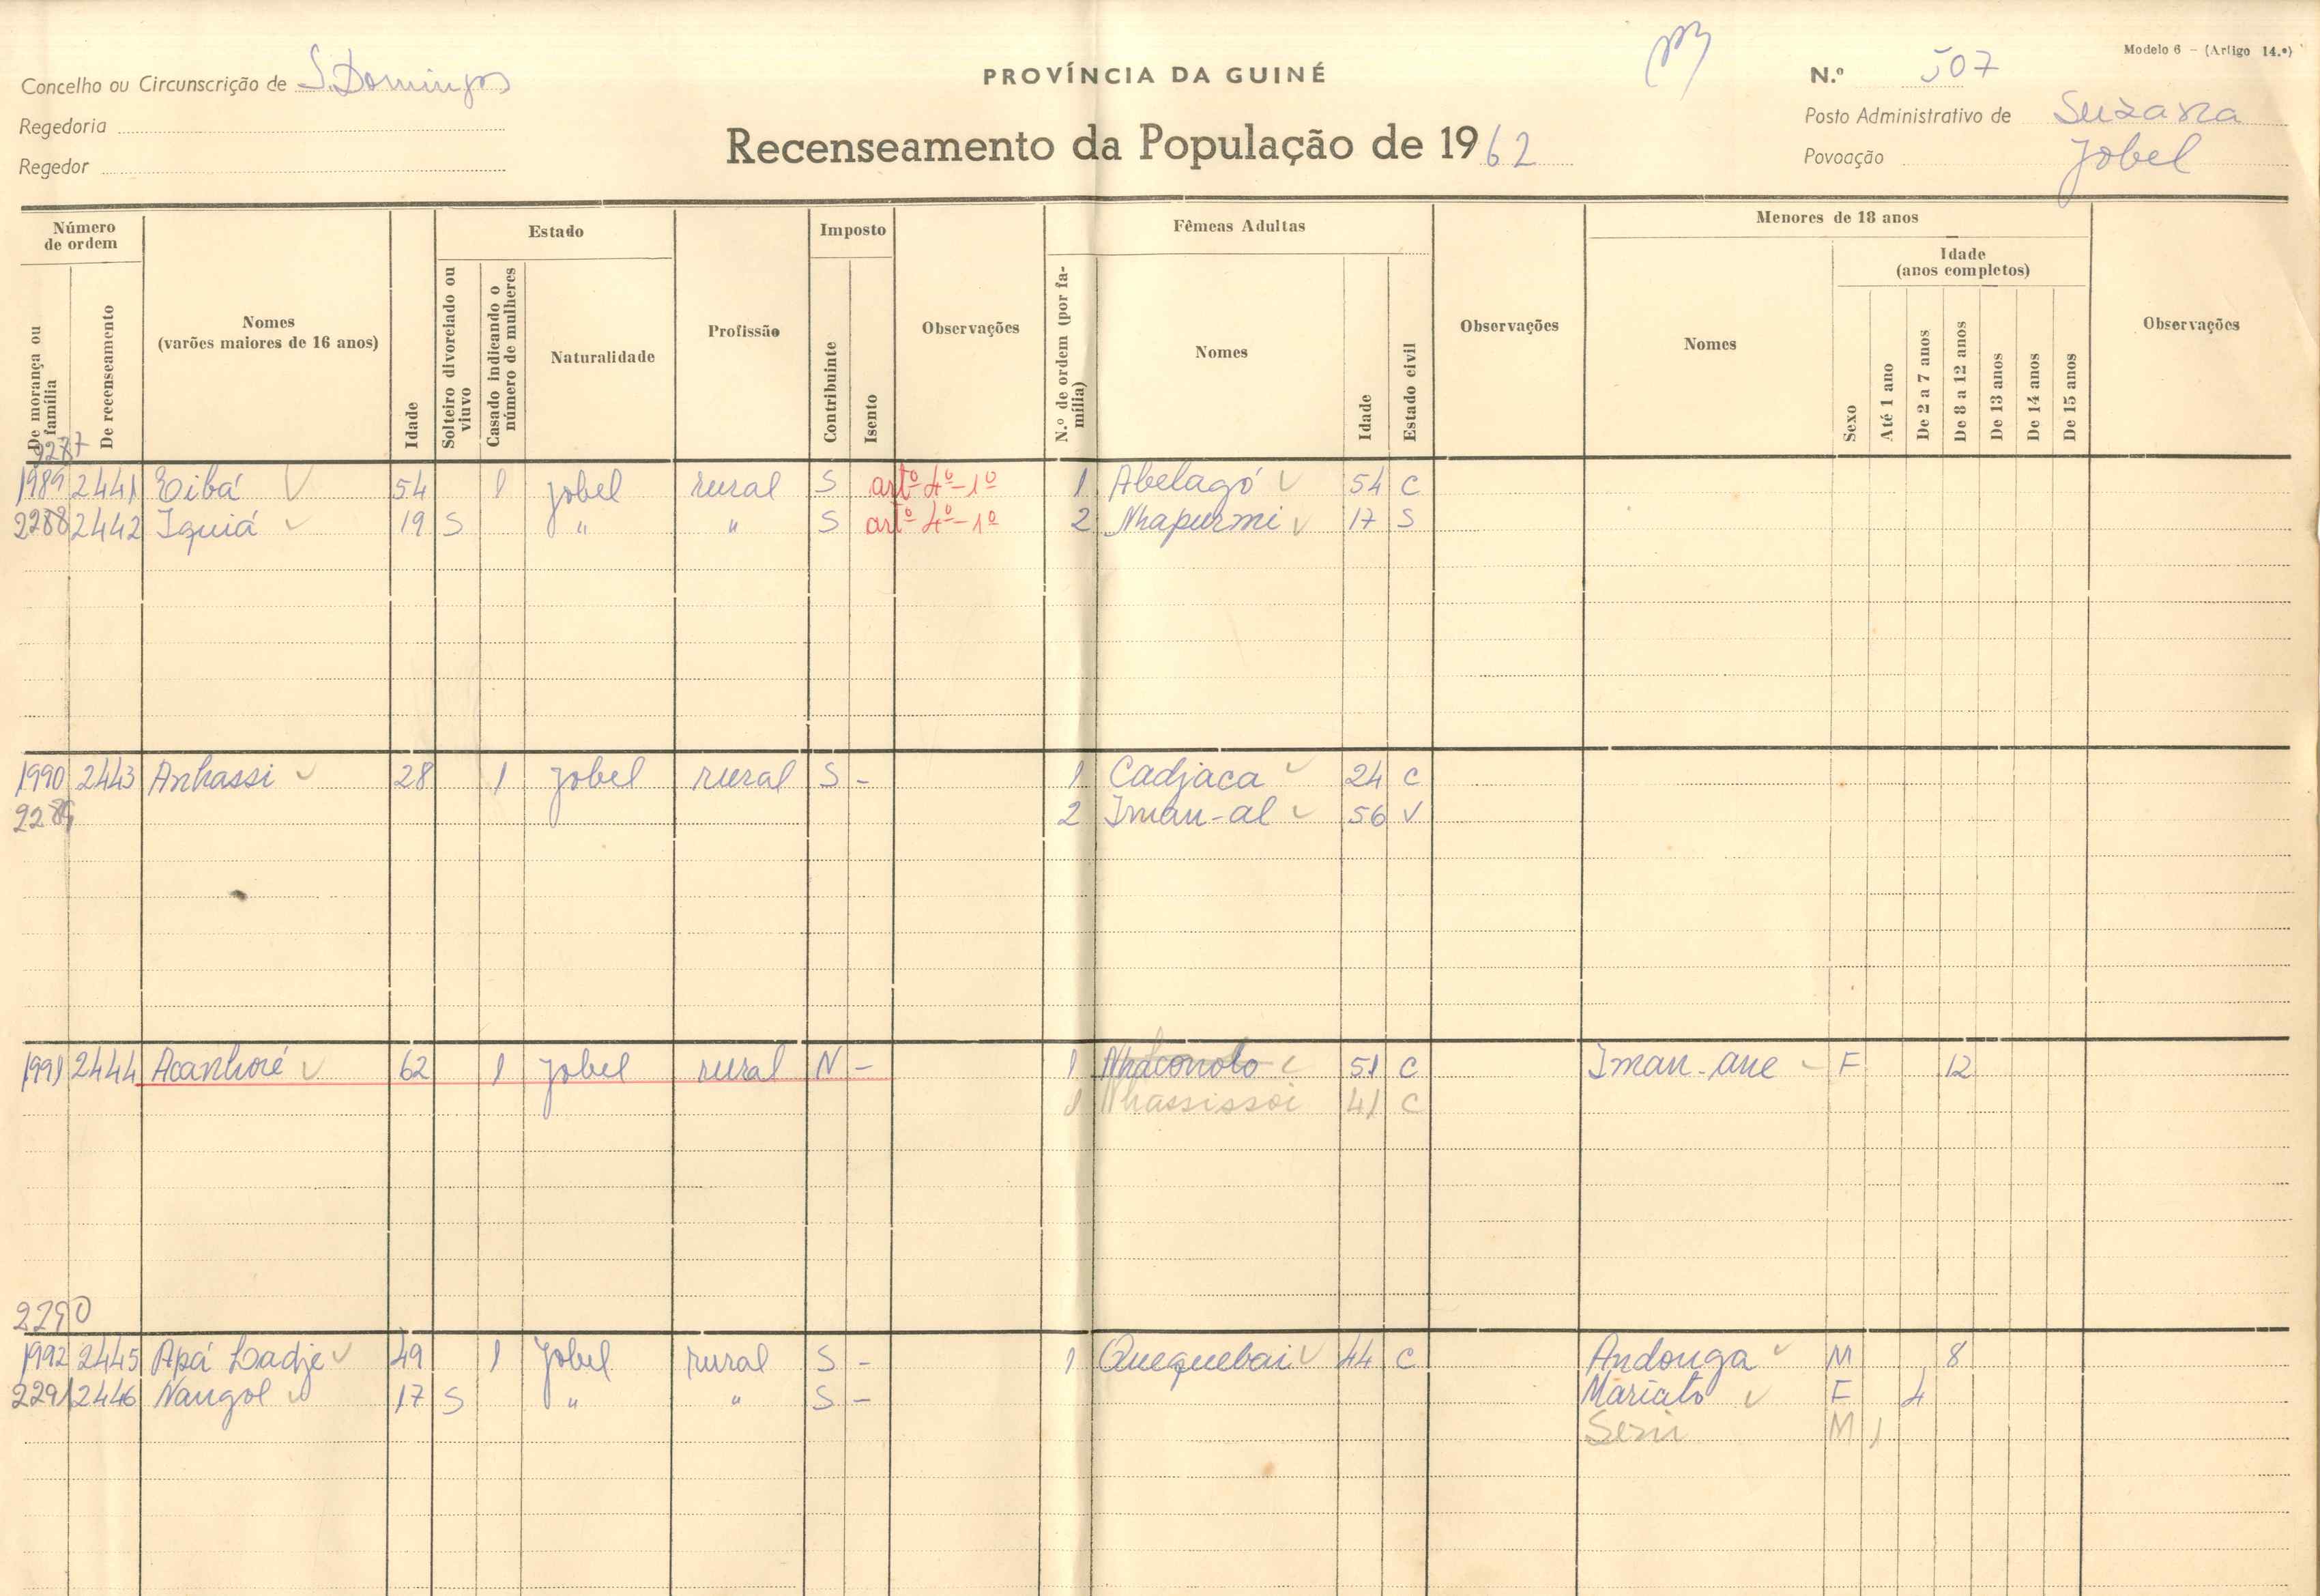 Modelo 6 - (Artigo 14.º)
Concelho ou Circunscrição de S. Domingos
PROVÍNCIA DA GUINÉ
N.º 507
Regedoria
Posto Administrativo de Suzana
Recenseamento da População de 1962
Regedor
Povoação Jobel
Número de ordem
Estado
Imposto
Fêmeas Adultas
Menores de 18 anos
Idade (anos completos)
De morança ou família
De recenseamento
Nomes (varões maiores de 16 anos)
Idade
Solteiro divorciado ou viuvo
Casado indicando o número de mulheres
Naturalidade
Profissão
Contribuinte
Isento
Observações
N.º de ordem (por família)
Nomes
Idade
Estado civil
Observações
Nomes
Sexo
Até 1 ano
De 2 a 7 anos
De 8 a 12 anos
De 13 anos
De 14 anos
De 15 anos
Observações
2287
1989 2441 Eibá 54 1 Jobel rural S artº 4º-1º 1 Abelagó 54 C
2288 2442 Iquiá 19 S " " S artº 4º-1º 2 Nhapurmi 17 S
1990 2443 Anhassi 28 1 Jobel rural S - 1 Cadjaca 24 C
2289 2 Iman-al 56 V
1991 2444 Acanhoré 62 1 Jobel rural N - 1 51 C Iman-ane F 12
1 Nhassissoi 41 C
2290
1992 2445 Apá Ladje 49 1 Jobel rural S - 1 Quequebai 44 C Andonga M 8
2291 2446 Nangol 17 S " " S - Mariato F 4
Seni M 1